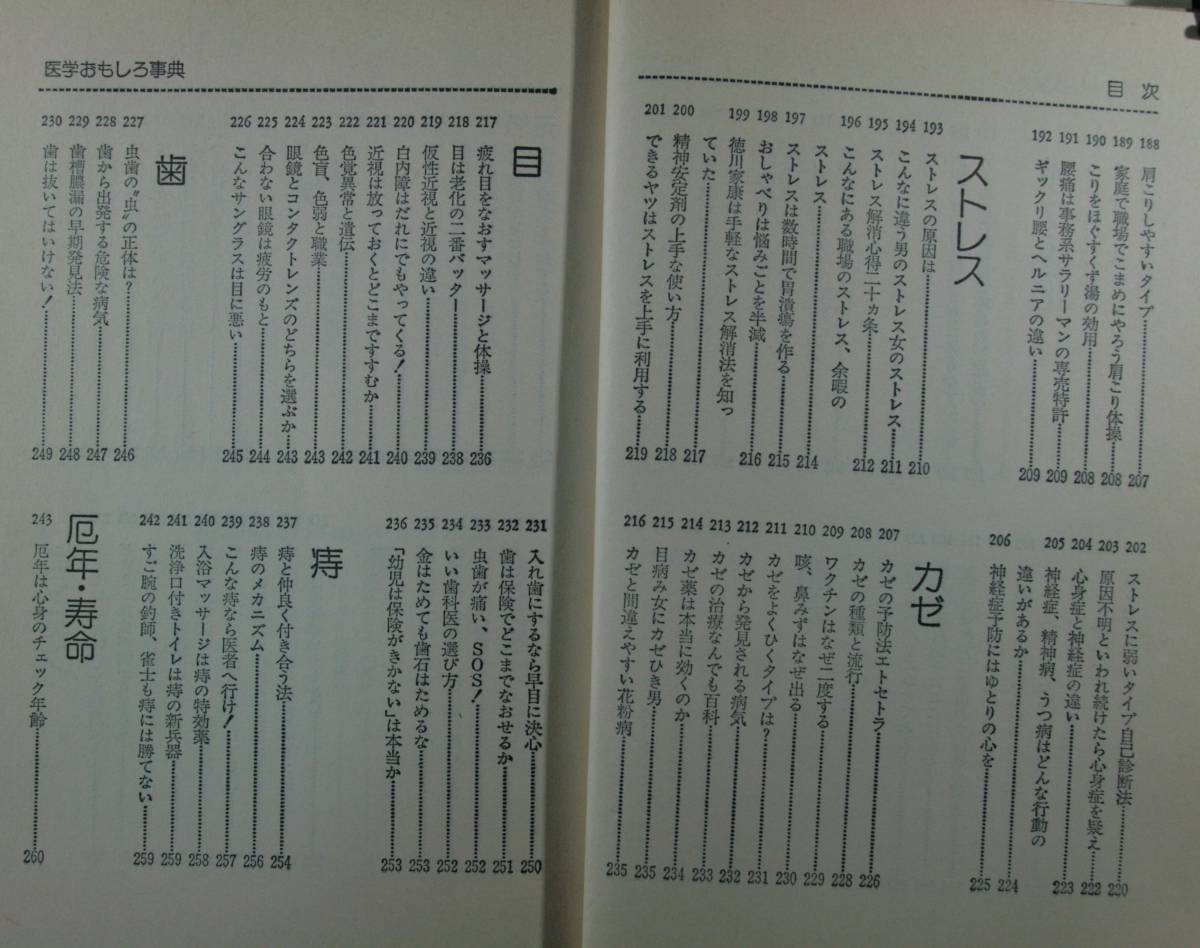 目次
188 肩こりしやすいタイプ 207
189 家庭で職場でこまめにやろう肩こり体操 208
190 こりをほぐすくず湯の効用 208
191 腰痛は事務系サラリーマンの専売特許 209
192 ギックリ腰とヘルニアの違い 209
ストレス
193 ストレスの原因は 210
194 こんなに違う男のストレス女のストレス 211
195 ストレス解消心得二十ヵ条 212
196 こんなにある職場のストレス、余暇の
ストレス 214
197 ストレスは数時間で胃潰瘍を作る 215
198 おしゃべりは悩みごとを半減 216
199 徳川家康は手軽なストレス解消法を知っ
ていた 217
200 精神安定剤の上手な使い方 218
201 できるヤツはストレスを上手に利用する 219
202 ストレスに弱いタイプ自己診断法 220
203 原因不明といわれ続けたら心身症を疑え 222
204 心身症と神経症の違い 223
205 神経症、精神病、うつ病はどんな行動の
違いがあるか 224
206 神経症予防にはゆとりの心を 225
カゼ
207 カゼの予防法エトセトラ 226
208 カゼの種類と流行 228
209 ワクチンはなぜ二度する 229
210 咳、鼻みずはなぜ出る 230
211 カゼをよくひくタイプは？ 231
212 カゼから発見される病気 232
213 カゼの治療なんでも百科 233
214 カゼ薬は本当に効くのか 234
215 目病み女にカゼひき男 235
216 カゼと間違えやすい花粉病 235
医学おもしろ事典
目
217 疲れ目をなおすマッサージと体操 236
218 目は老化の二番バッター 238
219 仮性近視と近視の違い 239
220 白内障はだれにでもやってくる！ 240
221 近視は放っておくとどこまですすむか 241
222 色覚異常と遺伝 242
223 色盲、色弱と職業 243
224 眼鏡とコンタクトレンズのどちらを選ぶか 243
225 合わない眼鏡は疲労のもと 244
226 こんなサングラスは目に悪い 245
歯
227 虫歯の〝虫〟の正体は？ 246
228 歯から出発する危険な病気 247
229 歯槽膿漏の早期発見法 248
230 歯は抜いてはいけない！ 249
231 入れ歯にするなら早目に決心 250
232 歯は保険でどこまでなおせるか 251
233 虫歯が痛い、SOS！ 252
234 いい歯科医の選び方 252
235 金はためても歯石はためるな 253
236 「幼児は保険がきかない」は本当か 253
痔
237 痔と仲良く付き合う法 254
238 痔のメカニズム 256
239 こんな痔なら医者へ行け！ 257
240 入浴マッサージは痔の特効薬 258
241 洗浄口付きトイレは痔の新兵器 259
242 すご腕の釣師、雀士も痔には勝てない 259
厄年・寿命
243 厄年は心身のチェック年齢 260